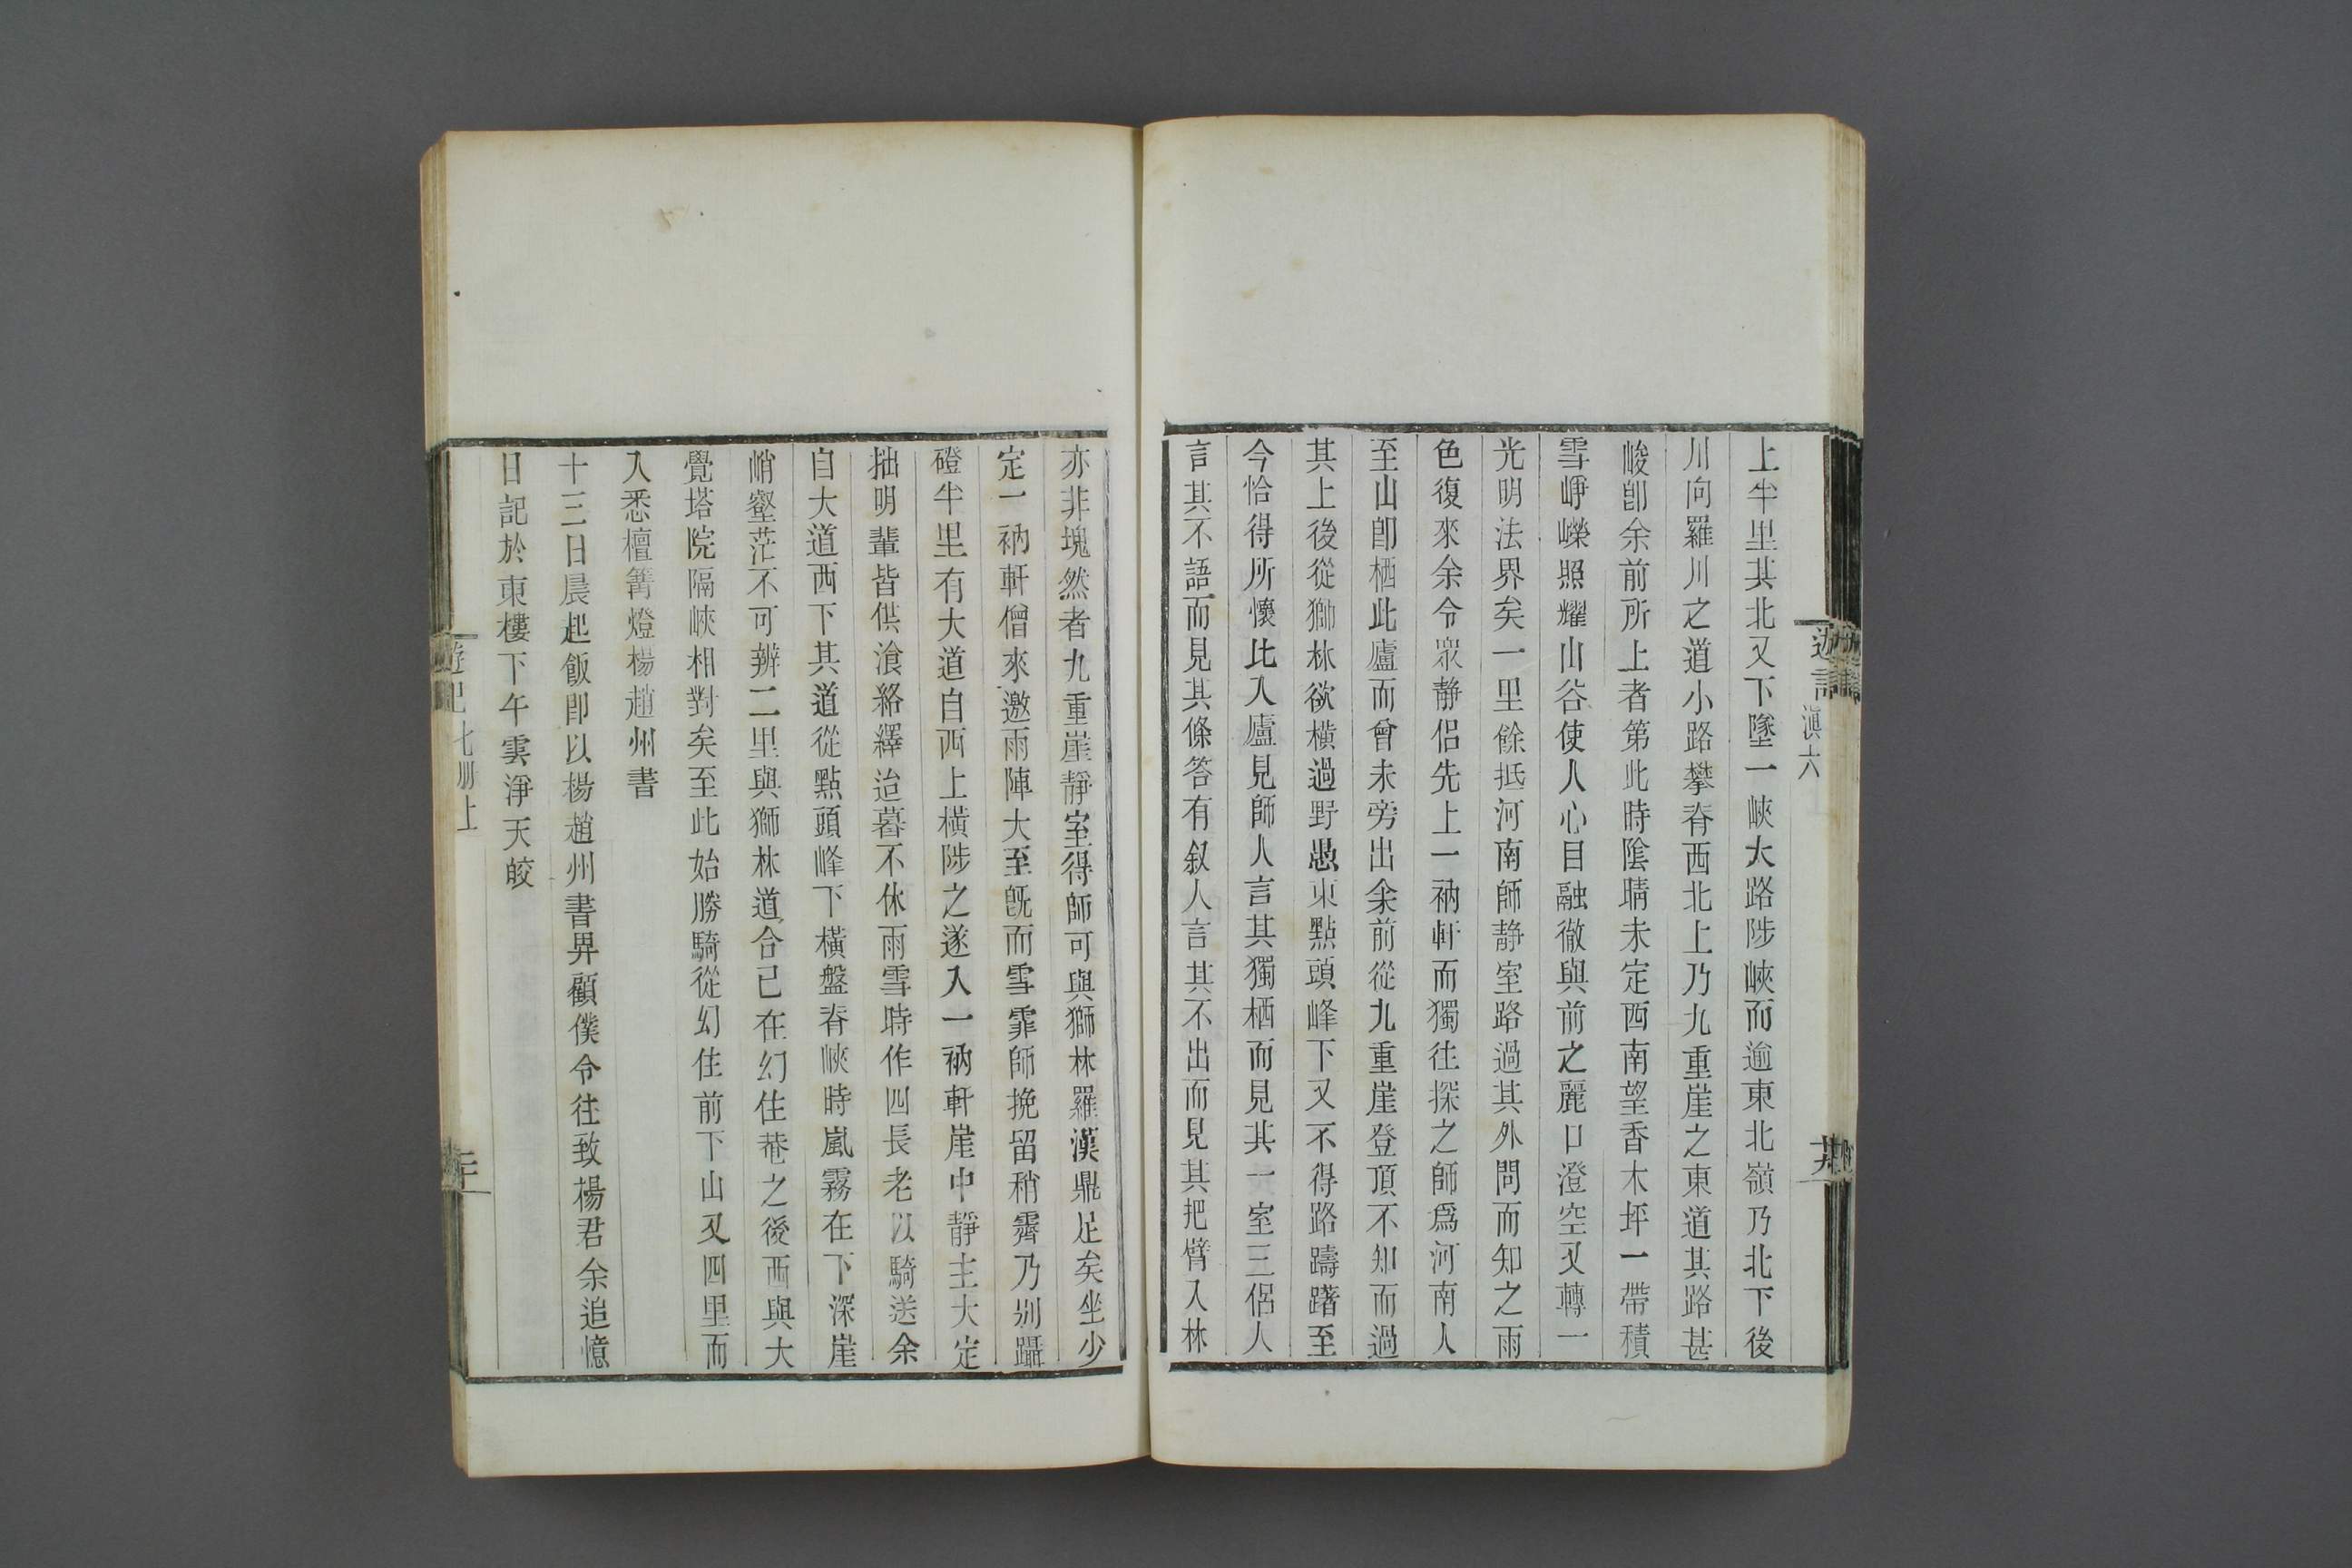 上半里其北又下墜一峽大路陟峽而逾東北嶺乃北下後
川向羅川之道小路攀脊西北上乃九重崖之東道其路甚
峻卽余前所上者第此時陰晴未定西南望香木坪一帶積
雪崢嶸照耀山谷使人心目融徹與前之麗日澄空又轉一
光明法界矣一里餘抵河南師静室路過其外問而知之雨
色復來余令衆静侶先上一衲軒而獨往探之師爲河南人
至山卽栖此廬而曾未旁出余前從九重崖登頂不知而過
其上後從獅林欲橫過野愚東點頭峰下又不得路躊躇至
今恰得所懷比入廬見師人言其獨栖而見其一室三侶人
言其不語而見其條答有叙人言其不出而見其把臂入林
亦非塊然者九重崖靜室得師可與獅林羅漢鼎足矣坐少
定一衲軒僧來邀雨陣大至旣而雪霏師挽留稍霽乃别躡
磴半里有大道自西上橫陟之遂入一衲軒崖中靜主大定
拙明輩皆供飡絡繹迨暮不休雨雪時作四長老以騎送余
自大道西下其道從點頭峰下橫盤脊峽時嵐霧在下深崖
峭壑茫不可辨二里與獅林道合已在幻住菴之後西與大
覺塔院隔峽相對矣至此始勝騎從幻住前下山又四里而
入悉檀篝燈楊趙州書
十三日晨起飯卽以楊趙州書畀顧僕令往致楊君余追憶
日記於東樓下午雲淨天皎
遊記 滇六
遊記 七册上